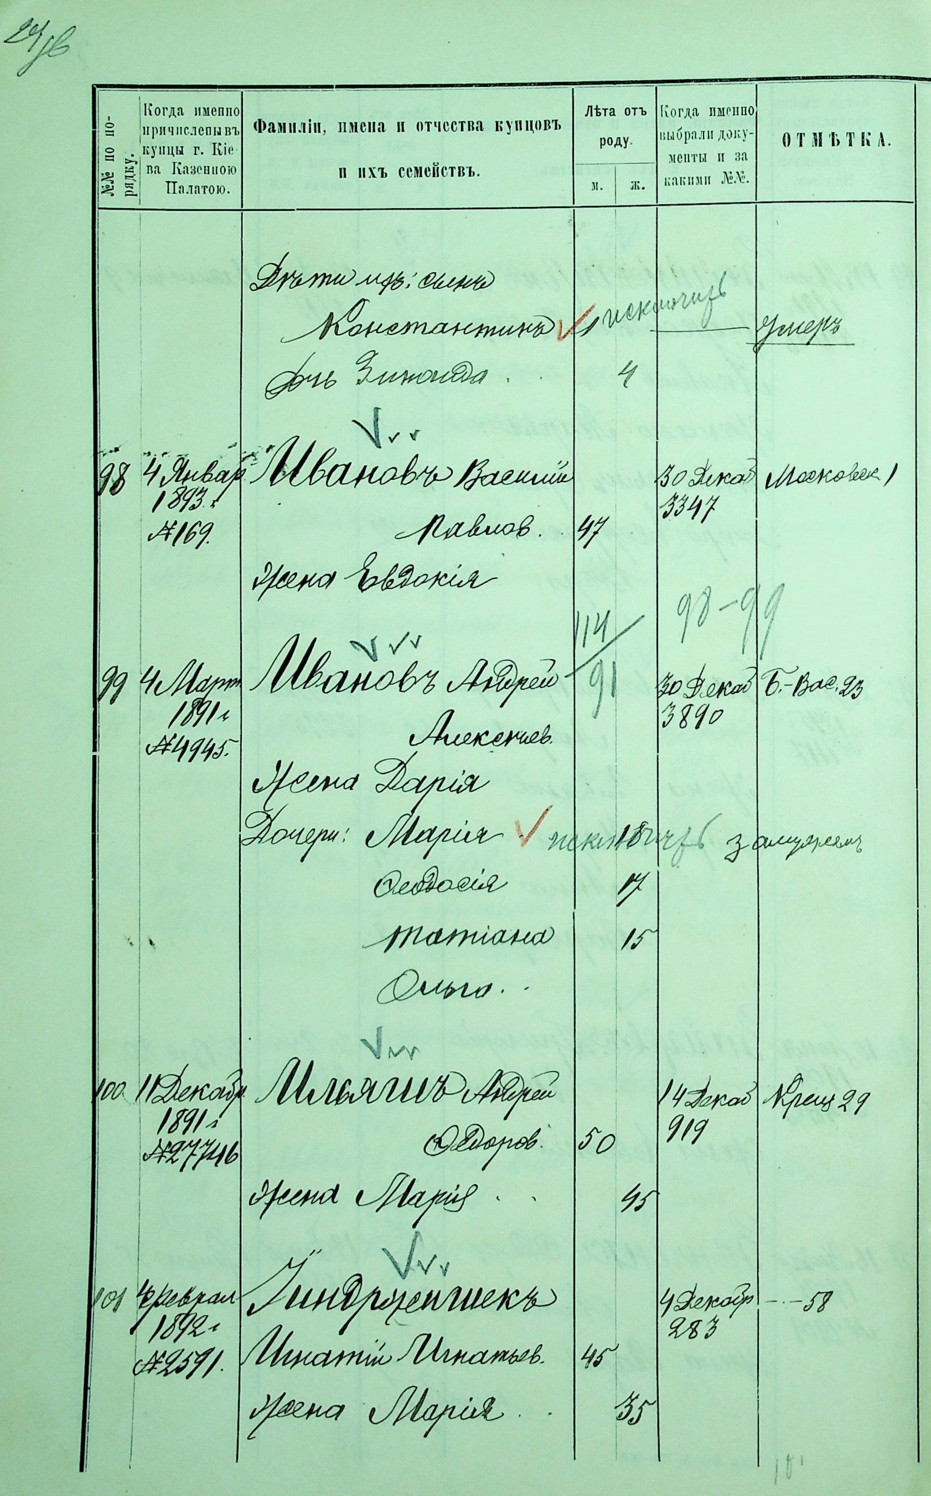 №№ по порядку.
Когда именно причислены въ купцы г. Кіева Казенною Палатою.
Фамиліи, имена и отчества купцовъ и ихъ семействъ.
Лѣта отъ роду.
м. ж.
Когда именно выбрали документы и за какими №№.
ОТМѢТКА.
Дѣти ихъ: сынъ
Константинъ 1 исключить умеръ
дочь Зинаида 4
98 4 Январ Ивановъ Василій 30 Декаб Московск 1
1893 г 3347
№169. Павлов. 47
Жена Евдокія
98-99
114
99 4 Март Ивановъ Андрей 91 30 Декаб Б.-Вас. 23
1891 г 3890
№4945. Алексѣев.
Жена Дарія
Дочери: Марія 18 исключить замужемъ
Ѳеодосія 17
Татіана 15
Ольга
100 11 Декабр Ильяшъ Андрей 14 Декаб Крещ 29
1891 г 919
№27746 Ѳедоров. 50
Жена Марія 45
101 4 Феврал Іиндржишекъ 4 Декабр - - 58
1892 г 283
№2591. Игнатій Игнатьев. 45
Жена Марія 35